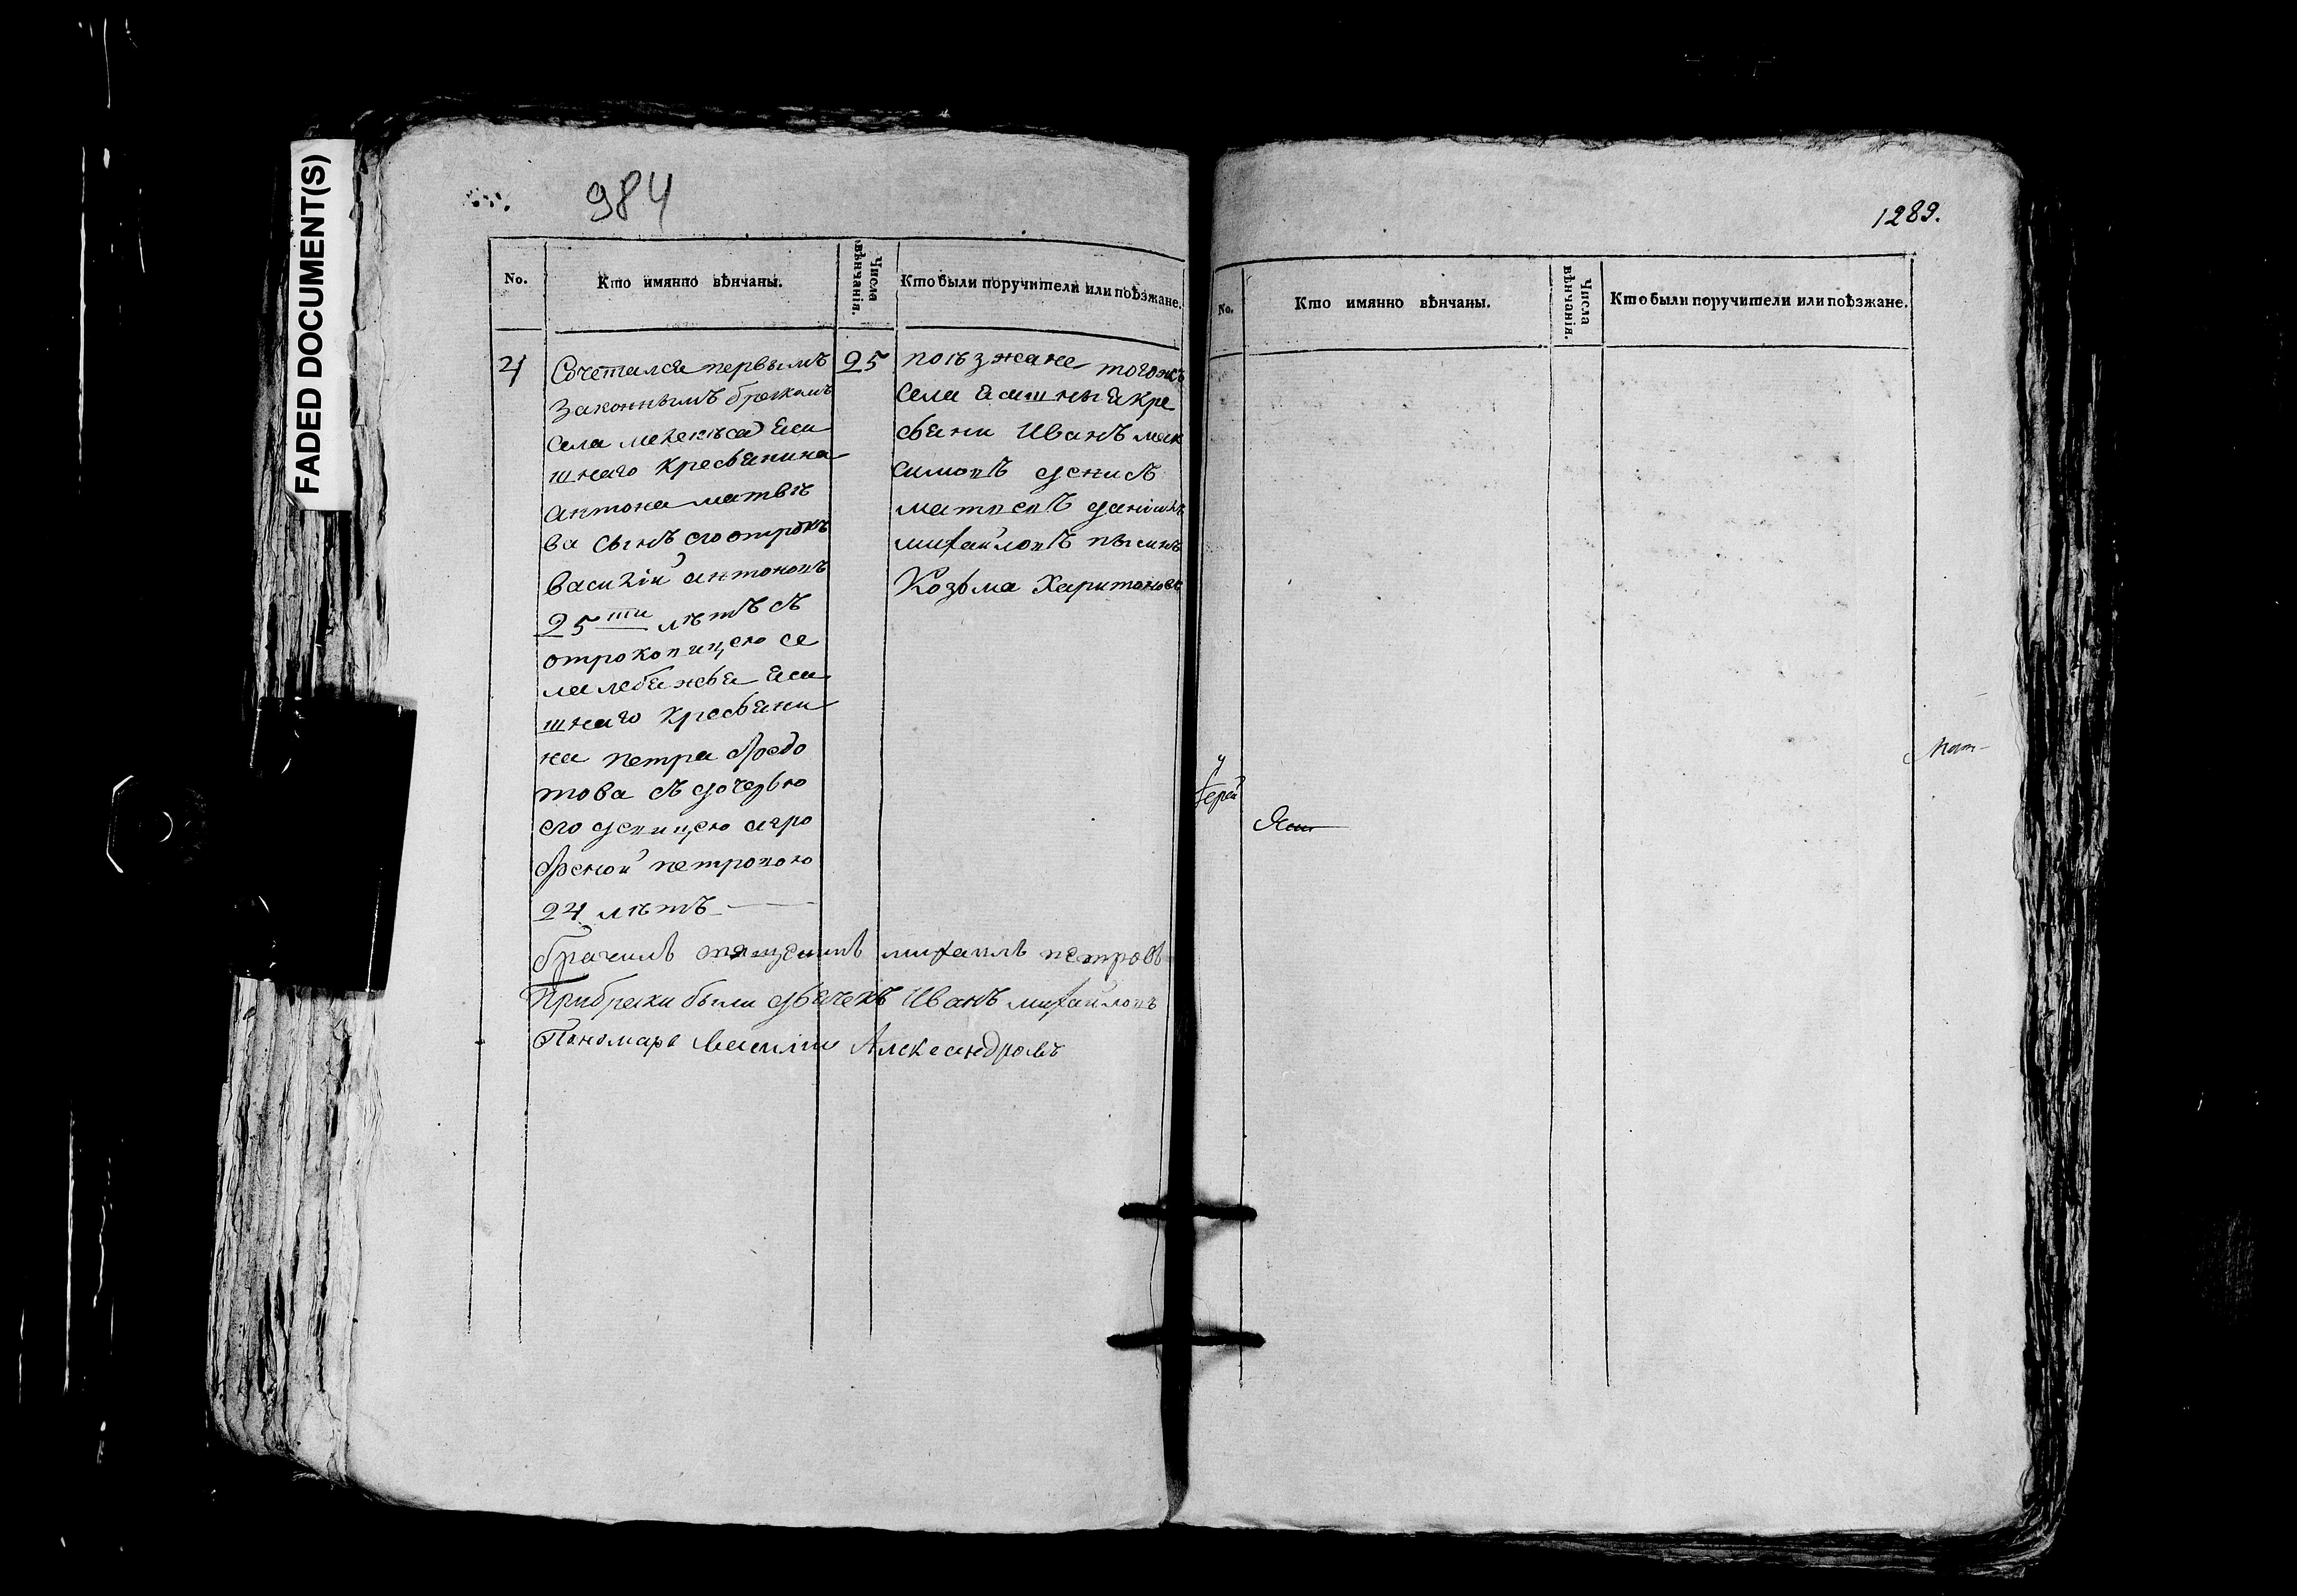 FADED DOCUMENT(S)
984
No.
Кто имянно вѣнчаны.
Числа вѣнчанія.
Кто были поручители или поѣзжане.
4
Сочетался первымъ
законнымъ бракомъ
села яса
шнаго кресьянина
антона матвѣ
ва сынъ его отрокъ
василій антоновъ
25 ти лѣтъ съ
отроковицею се
ла лебяжья яса
шнаго кресьяни
на петра Ѳедо
това съ дочерью
его девицею агро
Ѳеной петровою
24 лѣтъ
25
поѣзжане тогожъ
села ясашныя кре
сьяни Иванъ мак
симовъ денисъ
матвевъ данілъ
михайловъ
Козьма Харитоновъ
брачилъ священникъ михаилъ петровъ
При браки были дьячекъ Иванъ михайловъ
Пономарь василии Александровъ
1289.
No.
Кто имянно вѣнчаны.
Числа вѣнчанія.
Кто были поручители или поѣзжане.
Іерей